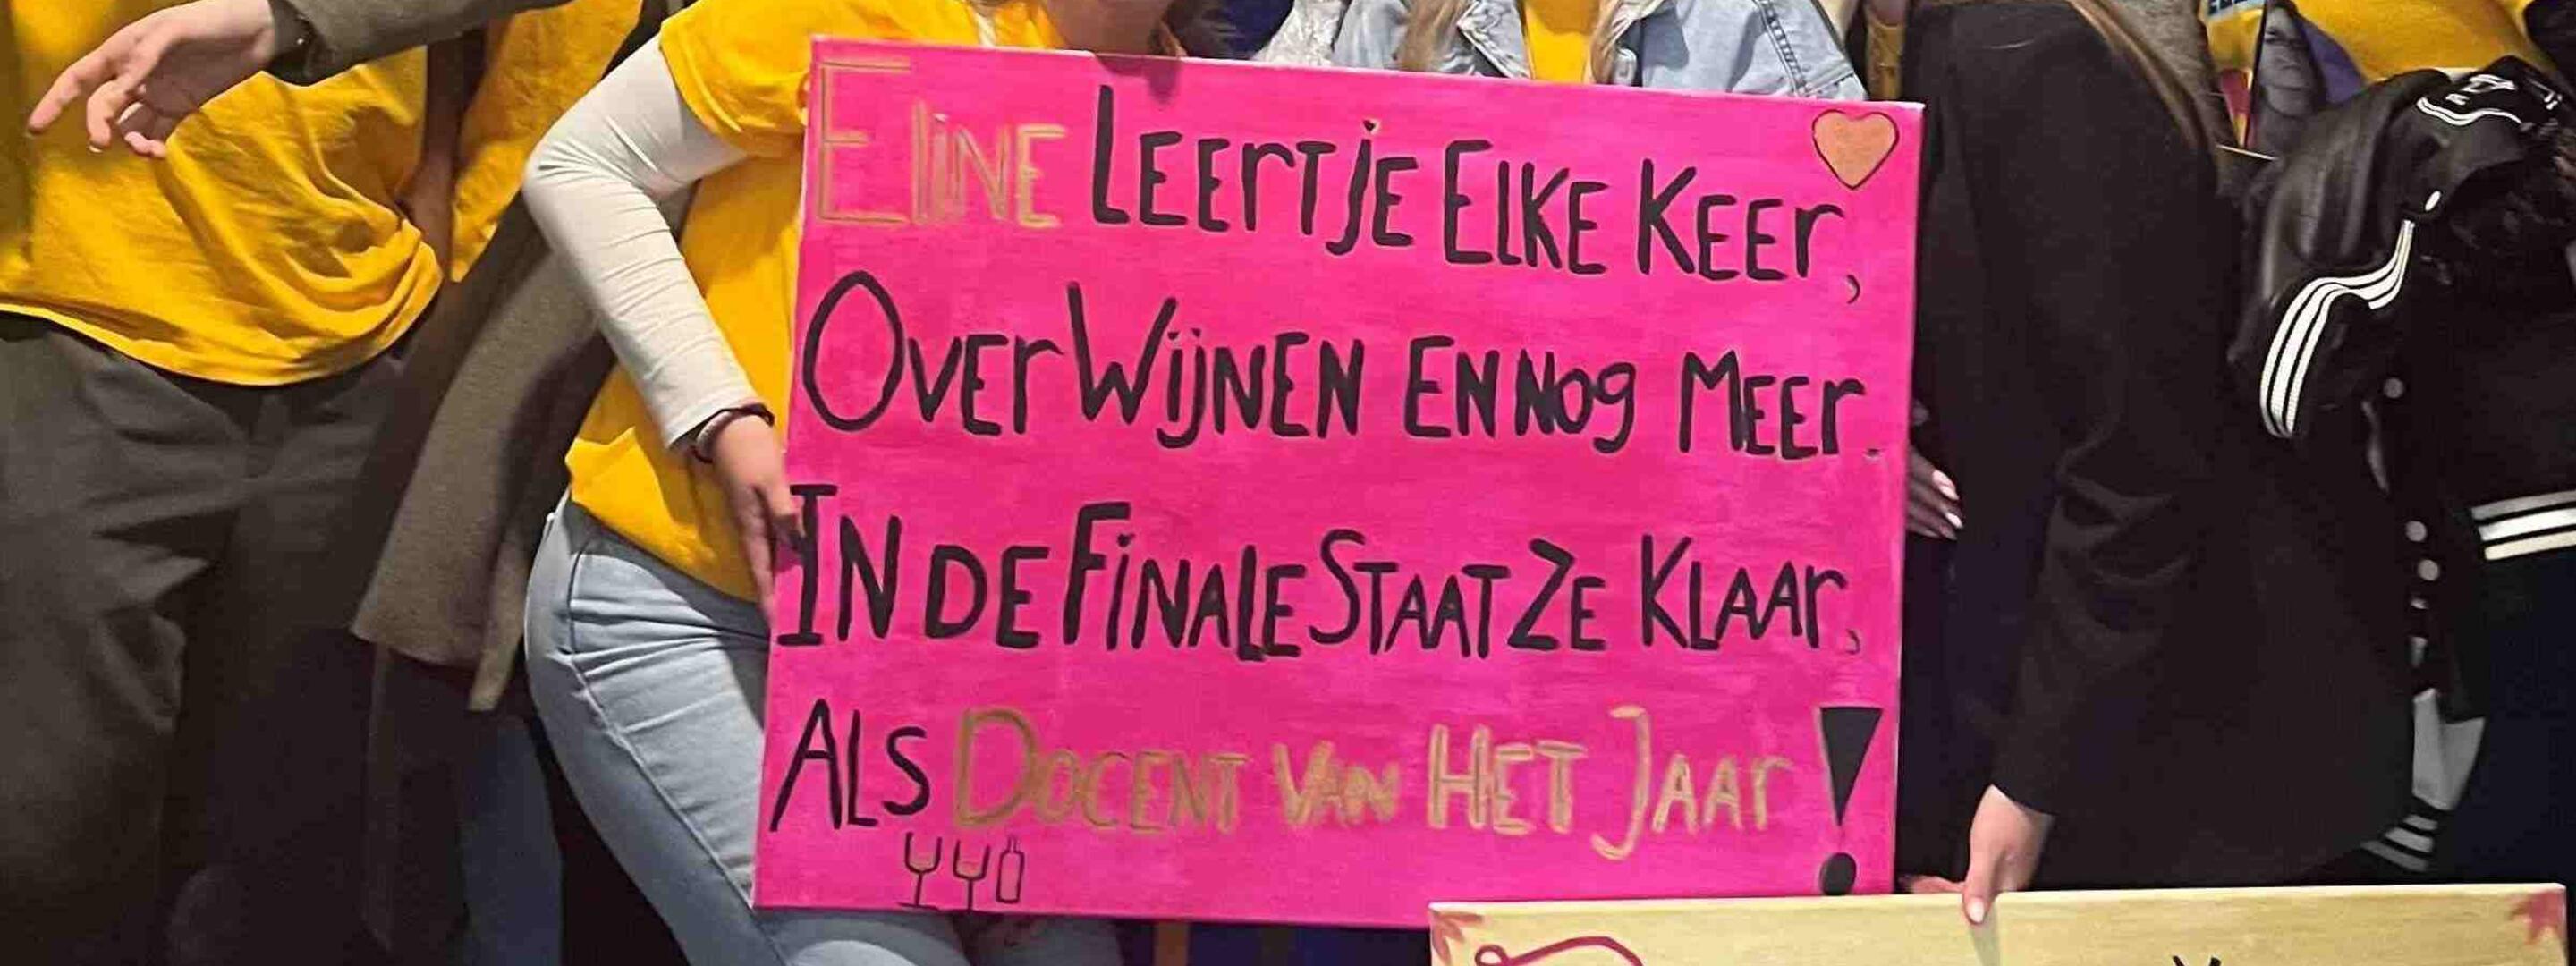 Eline Leert je Elke Keer,
Over Wijnen en nog meer.
In de Finale Staat Ze Klaar,
Als Docent van Het Jaar!